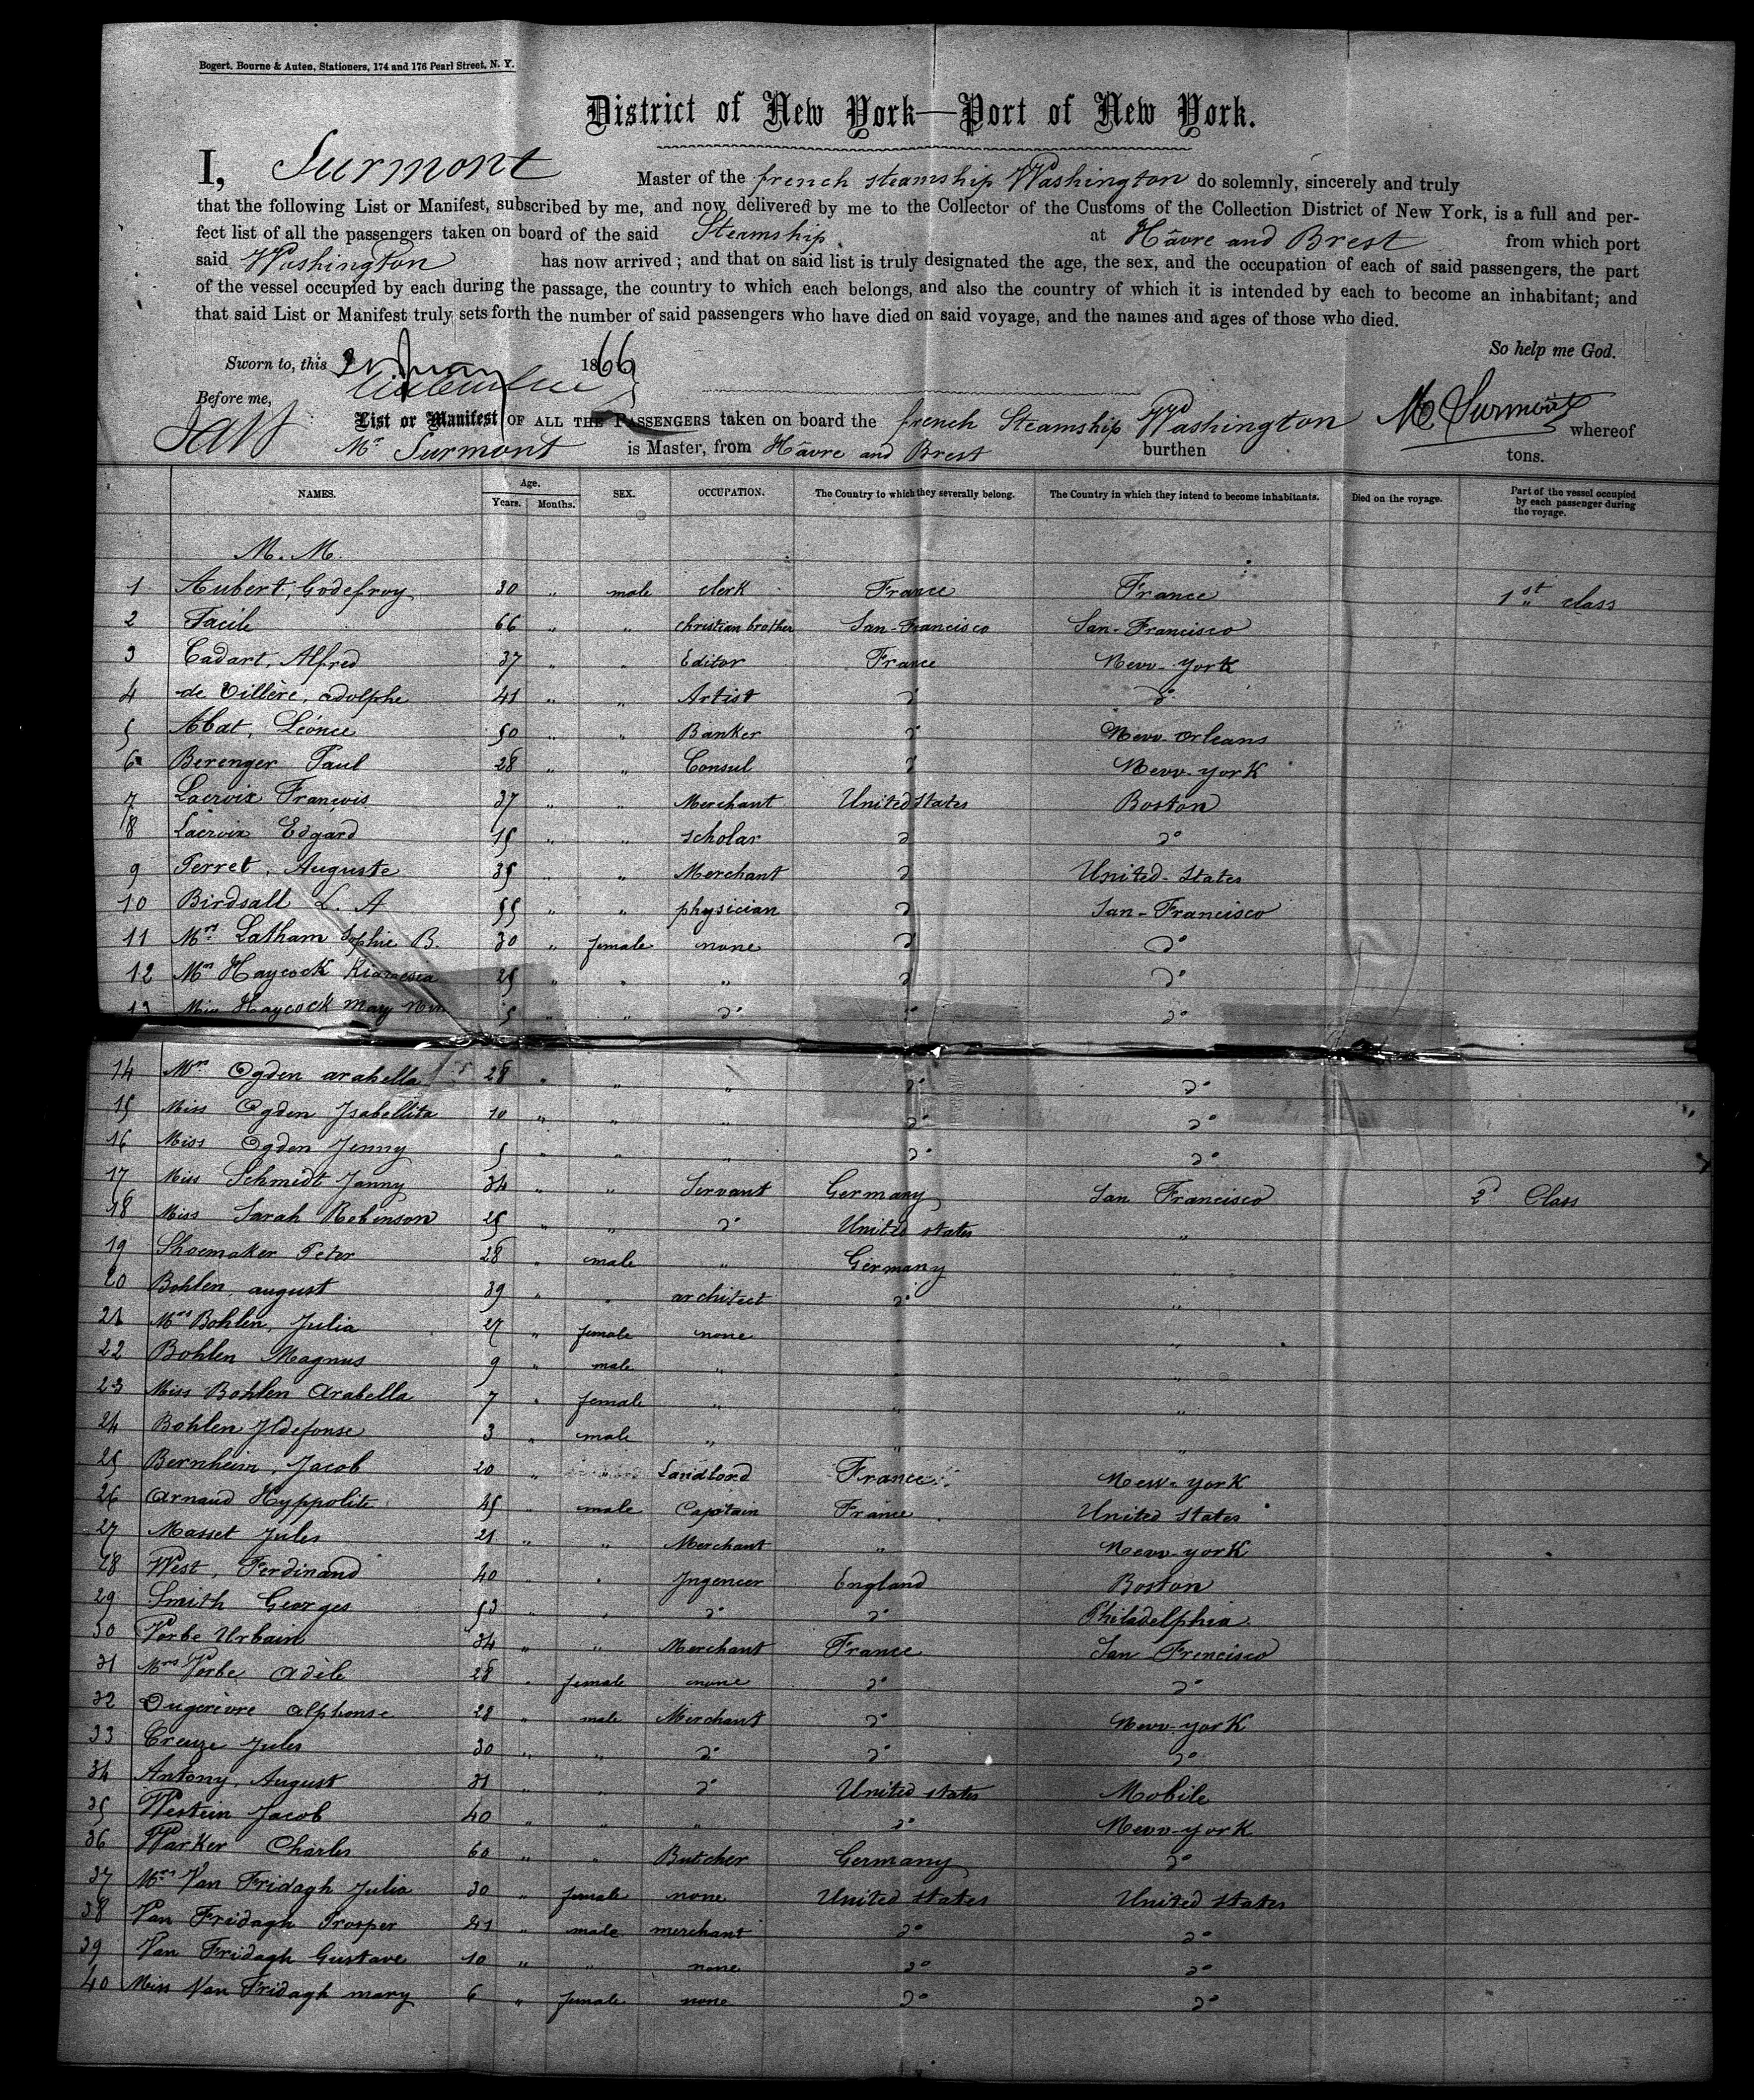 Bogert, Bourne & Auten, Stationers, 174 and 176 Pearl Street, N. Y.
District of New York—Port of New York.
I, Surmont Master of the french steamship Washington do solemnly, sincerely and truly
that the following List or Manifest, subscribed by me, and now delivered by me to the Collector of the Customs of the Collection District of New York, is a full and per-
fect list of all the passengers taken on board of the said Steamship at Hâvre and Brest from which port
said Washington has now arrived; and that on said list is truly designated the age, the sex, and the occupation of each of said passengers, the part
of the vessel occupied by each during the passage, the country to which each belongs, and also the country of which it is intended by each to become an inhabitant; and
that said List or Manifest truly sets forth the number of said passengers who have died on said voyage, and the names and ages of those who died.
So help me God.
Sworn to, this 1866
Before me,
M Surmont
List or Manifest OF ALL THE PASSENGERS taken on board the french Steamship Washington whereof
Mr Surmont is Master, from Hâvre and Brest burthen tons.
NAMES. Age. Years. Months. SEX. OCCUPATION. The Country to which they severally belong. The Country in which they intend to become inhabitants. Died on the voyage. Part of the vessel occupied by each passenger during the voyage.
M. M.
1 Aubert, Godefroy 30 " male clerk France France 1st class
2 Facile 66 " " christian brother San-Francisco San-Francisco
3 Cadart, Alfred 37 " " Editor France New-york
4 de Villère, adolphe 41 " " Artist do do
5 Abat, Léonce 50 " " Banker do New-Orleans
6 Berenger Paul 28 " " Consul do New-york
7 Lacroix François 37 " " Merchant United States Boston
8 Lacroix Edgard 15 " " scholar do do
9 Perret, Auguste 35 " " Merchant do United-States
10 Birdsall L. A 55 " " physician do San-Francisco
11 Mrs Latham Sophie B. 30 " female none do do
12 Mrs Haycock 25 " " " do do
13 Miss Haycock May 5 " " do do do
14 Mrs Ogden arabella 28 " " " do do
15 Miss Ogden Isabellita 10 " " " do do
16 Miss Ogden Jenny 5 " " " do do
17 Miss Schmedt Janny 34 " " Servant Germany San Francisco 2d Class
18 Miss Sarah Robenson 25 " " do United states "
19 Shoemaker Peter 28 " male " Germany "
20 Bohlen, august 39 " " architect do "
21 Mrs Bohlen, Julia 27 " female none "
22 Bohlen Magnus 9 " male " " "
23 Miss Bohlen Arabella 7 " female " " "
24 Bohlen Ildefonse 3 " male " " "
25 Bernheim, Jacob 20 " Landlord France New-york
26 Arnaud Hyppolite 45 " male Captain France United States
27 Masset Jules 21 " " Merchant " New-york
28 West, Ferdinand 40 " " Ingeneer England Boston
29 Smith Georges 53 " " do do Philadelphia
30 Verbe Urbain 34 " " Merchant France San Frencisco
31 Mrs Verbe Adèle 28 " female none do do
32 alphonse 28 " male Merchant do New-york
33 Creuze Jules 30 " " do do do
34 Antony, August 31 " " do United states Mobile
35 Westein Jacob 40 " " " do New-york
36 Warker Charles 60 " " Butcher Germany do
37 Mrs Van Fridagh Julia 30 " female none United states United states
38 Van Fridagh Prosper 41 " male merchant do do
39 Van Fridagh Gustave 10 " " none do do
40 Miss Van Fridagh mary 6 " female none do do